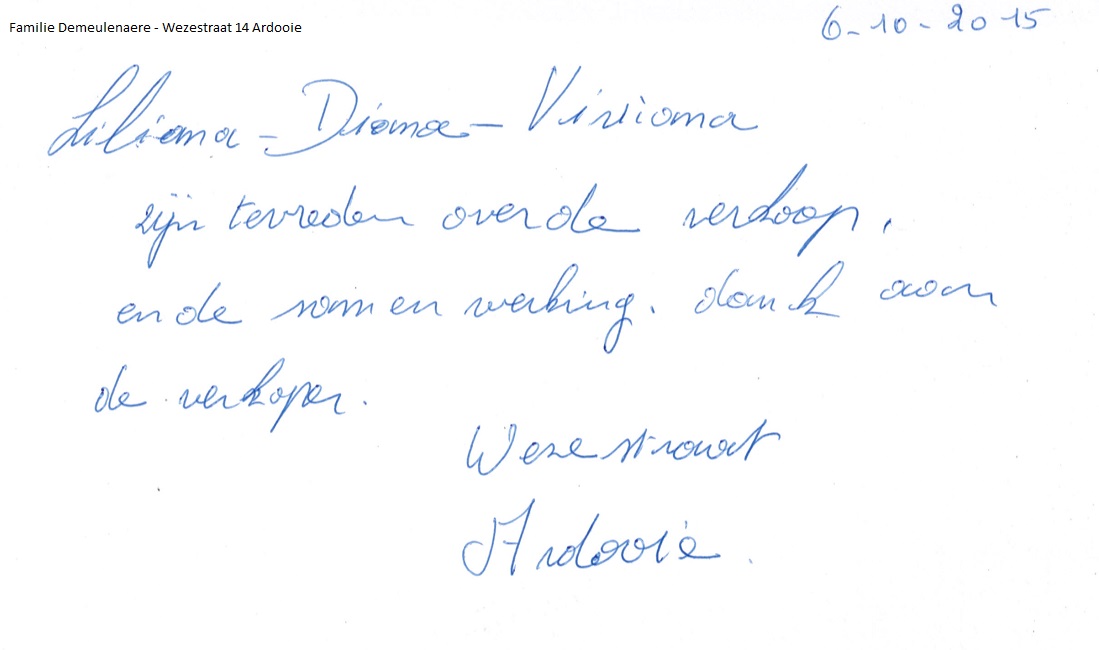 Familie Demeulenaere - Wezestraat 14 Ardooie
6-10-2015
Liliana - Diana - Viviana
zijn tevreden over de verkoop,
en de samen werking. dank aan
de verkoper.
Wezestraat
Ardooie.